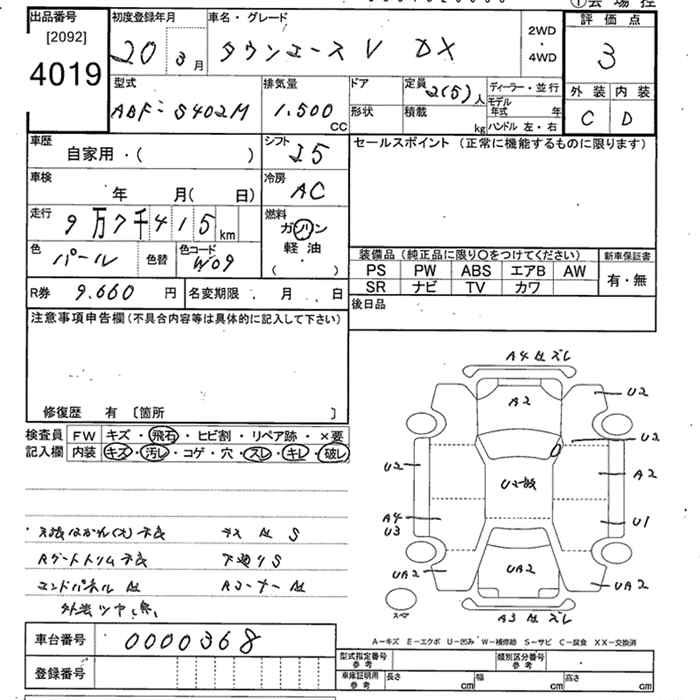 ①会場控
出品番号
[2092]
4019
初度登録年月
20 3月
車名・グレード
タウンエースV DX
2WD
・
4WD
評価点
3
外装 内装
C D
型式
ABF-S402M
排気量
1.500
CC
ドア
形状
定員
2(5)人
積載
kg
ディーラー・並行
モデル
年式 年
ハンドル 左・右
車歴
自家用・( )
シフト
I5
セールスポイント (正常に機能するものに限ります)
車検
年 月( 日)
冷房
AC
走行
9万7千415km
燃料
ガソリン
・
軽油
( )
色
パール
色替
色コード
W09
装備品 (純正品に限り〇をつけてください)
新車保証書
PS PW ABS エアB AW
SR ナビ TV カワ
有・無
R券 9.660円
名変期限 . 月 . 日
後日品
注意事項申告欄 (不具合内容等は具体的に記入して下さい)
修復歴 有 〔箇所 〕
検査員
記入欄
FW キズ・飛石・ヒビ割・リペア跡・×要
内装 キズ・汚レ・コゲ・穴・スレ・キレ・破レ
A4 ズレ
A2
U2
U2
A2
U1
UA2
U2
A4
U3
UA2
UA2
A3 ズレ
スペア
Rゲートトリム不良
下廻りS
エンドパネル
Rコーナー
外装ツヤ無
A-キズ E-エクボ U-凹み W-補修跡 S-サビ C-腐食 XX-交換済
車台番号
0000368
登録番号
型式指定番号
参考
類別区分番号
参考
車庫証明用
参考
長さ cm
幅 cm
高さ cm